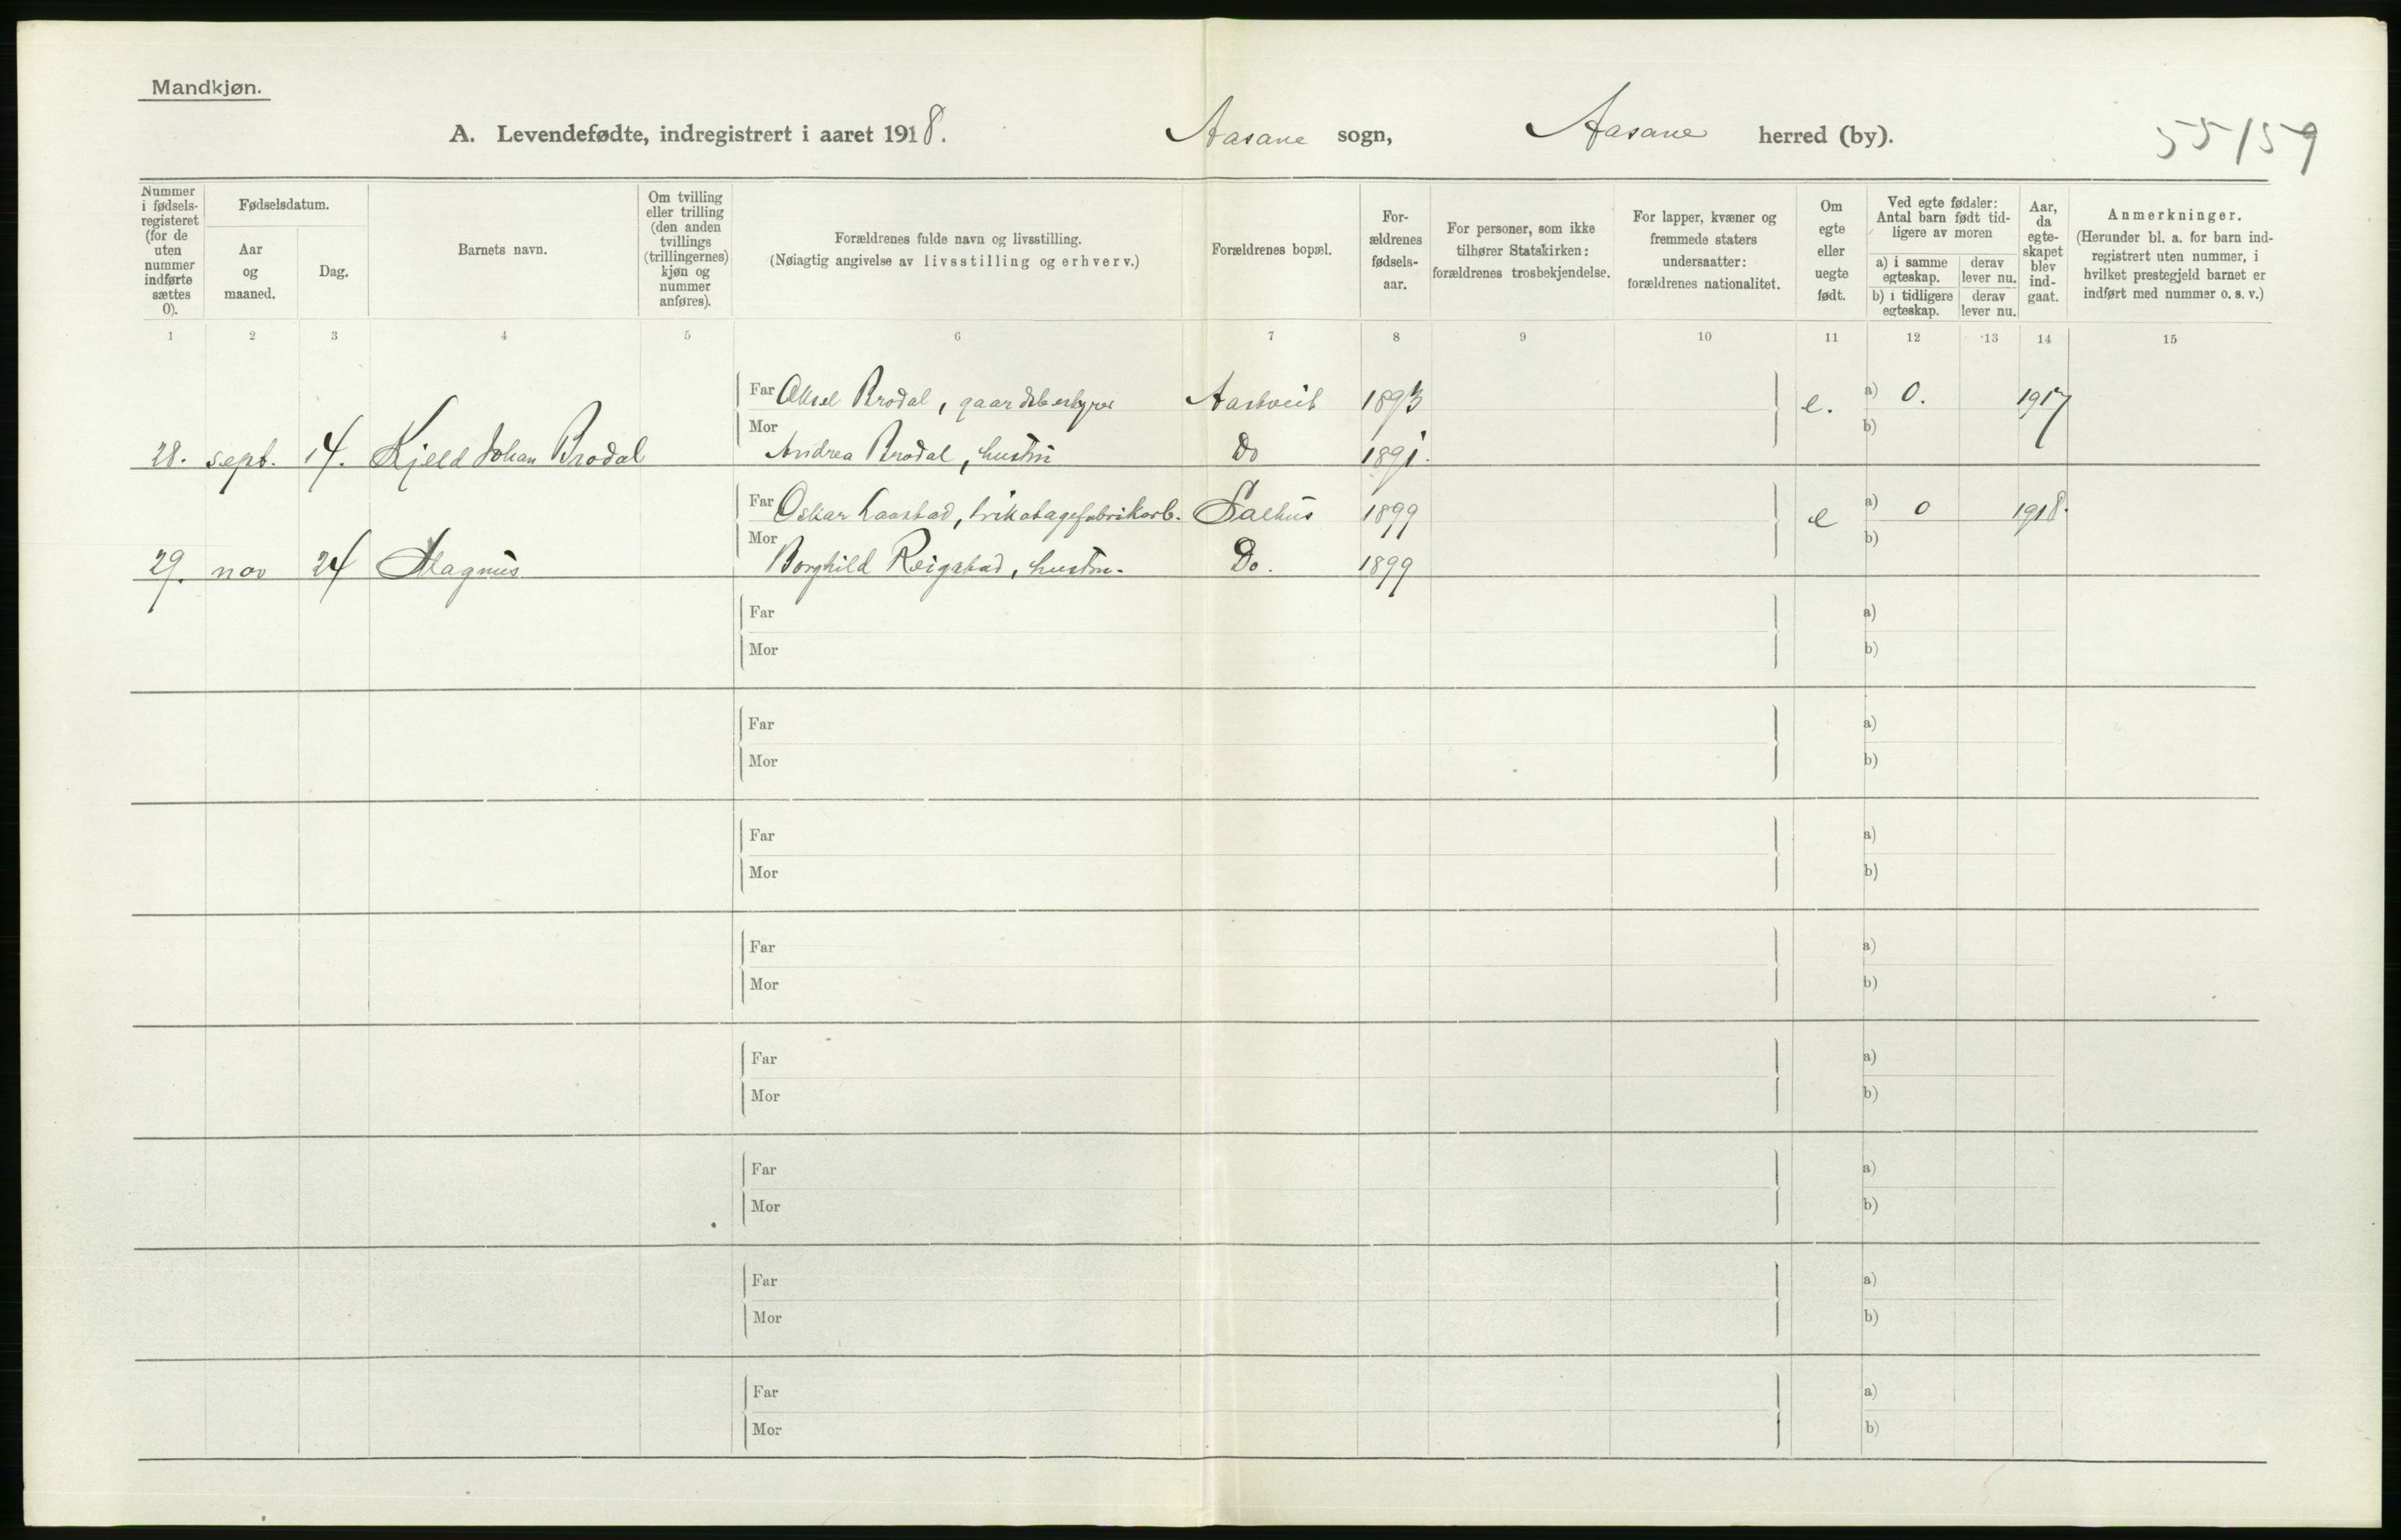 Mandkjøn.
A. Levendefødte, indregistrert i aaret 1918. Aasane sogn, Aasane herred (by). 55/59
Nummer i fødsels-registeret (for de uten nummer indførte sættes 0).
Fødselsdatum.
Aar og maaned.
Dag.
Barnets navn.
Om tvilling eller trilling (den anden tvillings (trillingernes) kjøn og nummer anføres).
Forældrenes fulde navn og livsstilling.
(Nøiagtig angivelse av livsstilling og erhverv.)
Forældrenes bopæl.
For-ældrenes fødsels-aar.
For personer, som ikke tilhører Statskirken: forældrenes trosbekjendelse.
For lapper, kvæner og fremmede staters undersaatter: forældrenes nationalitet.
Om egte eller uegte født.
Ved egte fødsler: Antal barn født tid-ligere av moren
a) i samme egteskap.
derav lever nu.
b) i tidligere egteskap.
derav lever nu.
Aar, da egte-skapet blev ind-gaat.
Anmerkninger.
(Herunder bl. a. for barn ind-registrert uten nummer, i hvilket prestegjeld barnet er indført med nummer o. s. v.)
1 2 3 4 5 6 7 8 9 10 11 12 13 14 15
Far Aksel Brodal, gaardsbestyrer Aastveit 1893 e. a) 0. 1917
Mor b)
28. sept. 14. Kjeld Johan Brodal Andrea Brodal, hustru Do 1891.
Far Oskar Laastad, trikotagefabrikarb. Salhus 1899 e a) 0 1918.
Mor b)
29. nov 24 Magnus Borghild Reigstad, hustru. Do. 1899
Far a)
Mor b)
Far a)
Mor b)
Far a)
Mor b)
Far a)
Mor b)
Far a)
Mor b)
Far a)
Mor b)
Far a)
Mor b)
Far a)
Mor b)